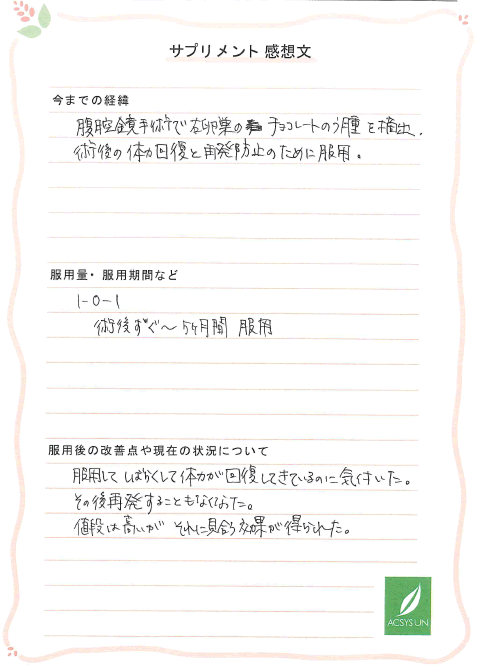 サプリメント 感想文
今までの経緯
腹腔鏡手術で右卵巣の チョコレートのう腫 を摘出.
術後の体力回復と再発防止のために服用。
服用量・服用期間など
1-0-1
術後すぐ～5ヶ月間 服用
服用後の改善点や現在の状況について
服用して しばらくして体力が回復してきているのに気付いた。
その後再発することもなくなった。
値段は高いが それに見合う効果が得られた。
ACSYSUN